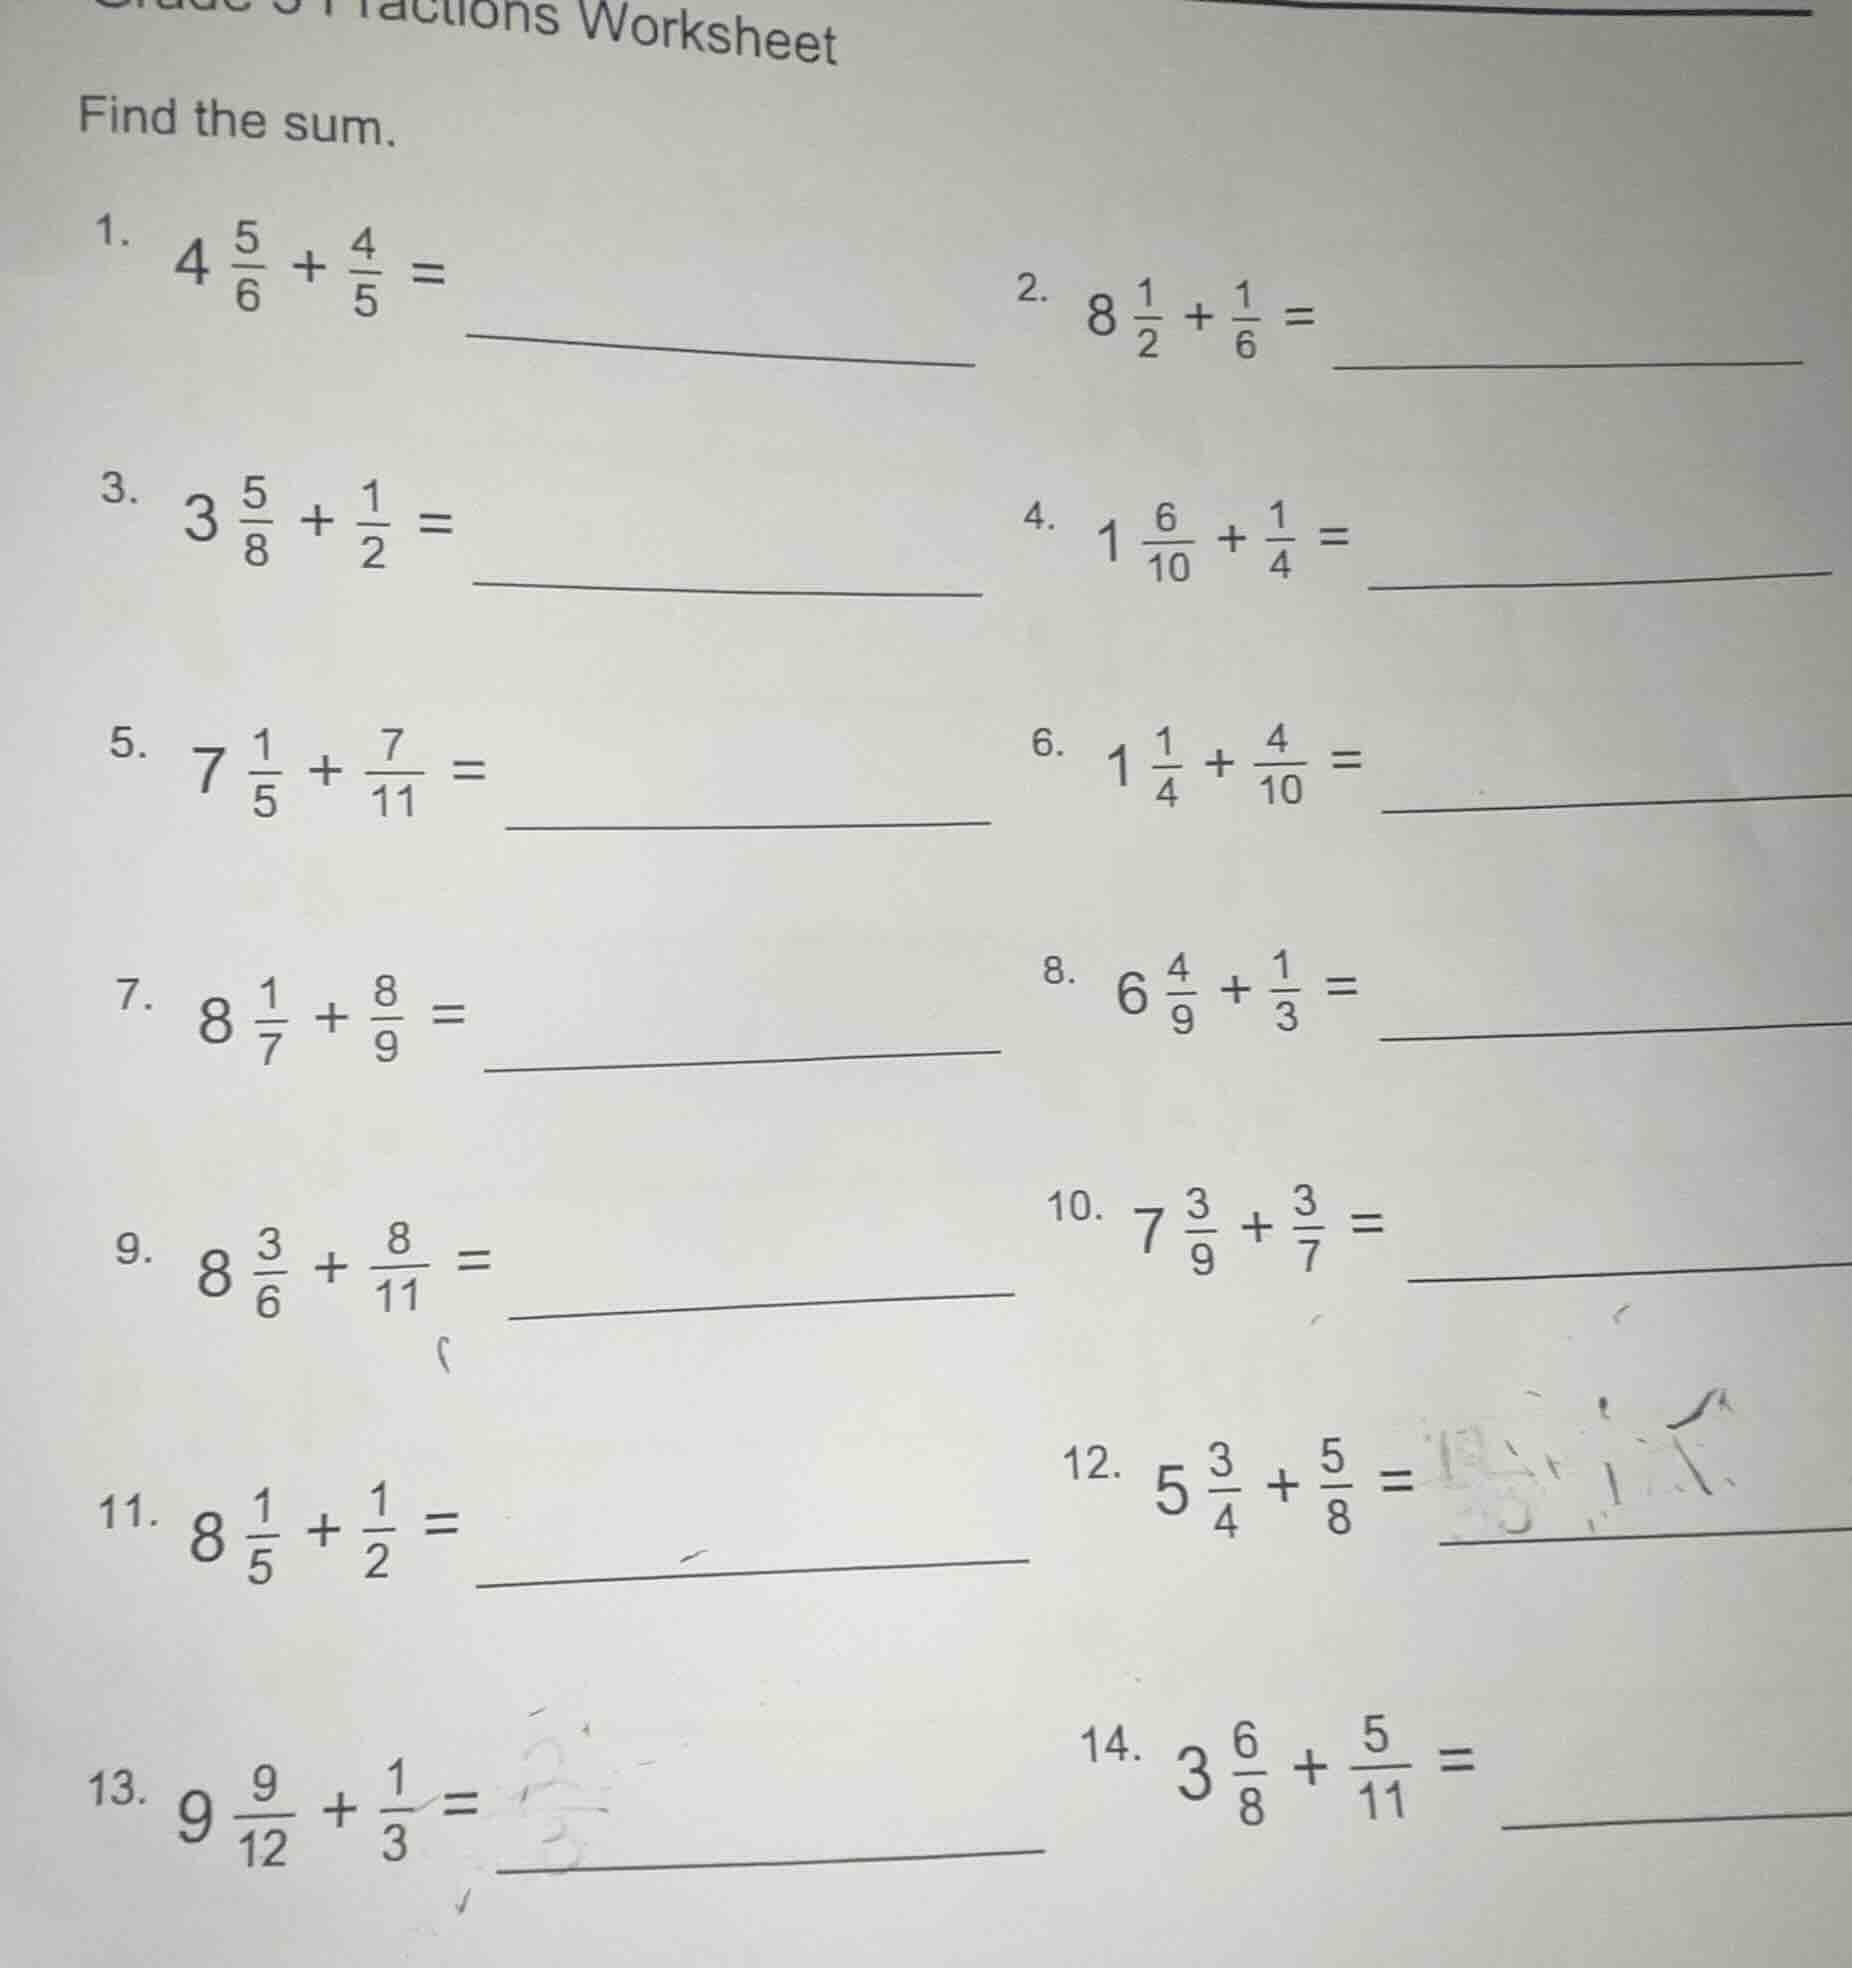 Grade 5 Fractions Worksheet
Find the sum.
1. 4 5/6 + 4/5 =
2. 8 1/2 + 1/6 =
3. 3 5/8 + 1/2 =
4. 1 6/10 + 1/4 =
5. 7 1/5 + 7/11 =
6. 1 1/4 + 4/10 =
7. 8 1/7 + 8/9 =
8. 6 4/9 + 1/3 =
9. 8 3/6 + 8/11 =
10. 7 3/9 + 3/7 =
11. 8 1/5 + 1/2 =
12. 5 3/4 + 5/8 =
13. 9 9/12 + 1/3 =
14. 3 6/8 + 5/11 =